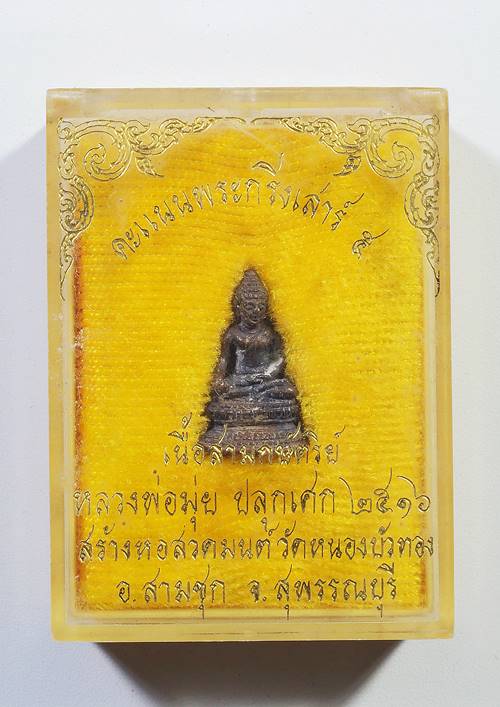 คะแนนพระกริ่งเสาร์ ๕
เนื้อสามกษัตริย์
หลวงพ่อมุ่ย ปลุกเศก ๒๕๑๖
สร้างหอสวดมนต์วัดหนองบัวทอง
อ.สามชุก จ.สุพรรณบุรี